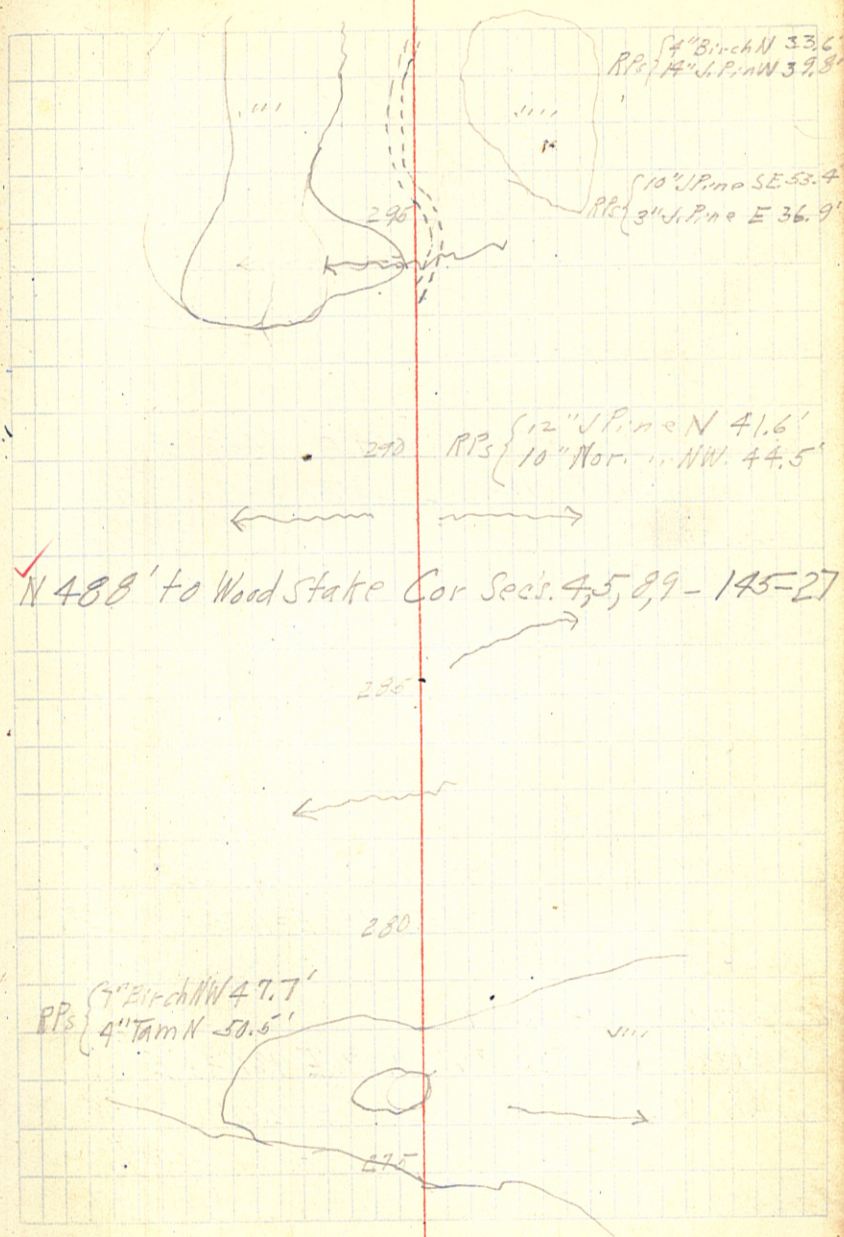 RPs { 4" Birch N 33.6'
14" J. Pin W 39.8'
RPs { 10" J Pine SE 53.4'
3" J. Pine E 36.9'
295
290
RPs { 12" J Pine N 41.6'
10" Nor. " NW 44.5'
N 488' to Wood Stake Cor Sec's. 4,5,8,9 - 145=27
285
280
RPs { Birch NW 47.7'
4" Tam N 50.5'
275